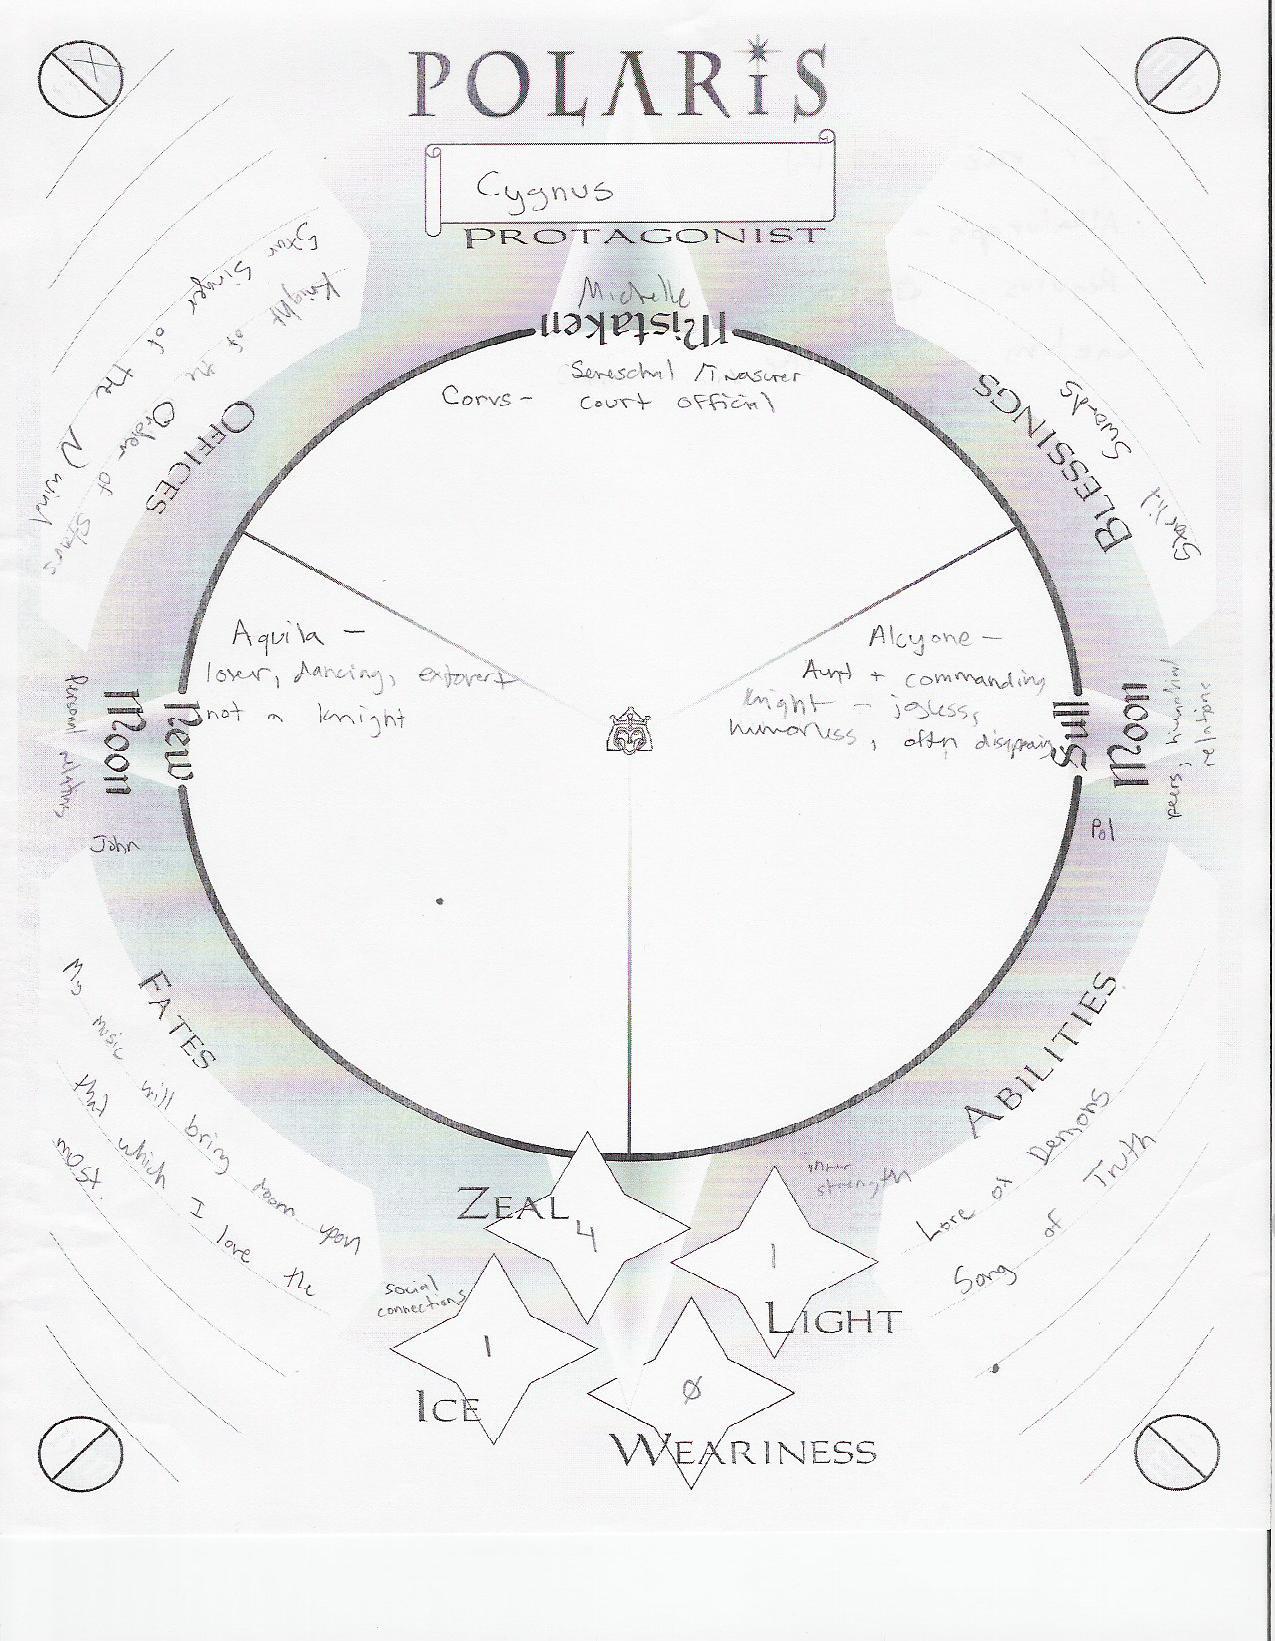 POLARIS
Cygnus
PROTAGONIST
Michelle
Mistaken
Seneschal / Treasurer
Corvus - court official
OFFICES
Knight of the Order of Stars
Star Singer of the N Wind
BLESSINGS
Starlit Swords
Aquila -
lover, dancing, extovert
not a knight
Alcyone -
Aunt + commanding
Knight - joyless,
humorless, often
New
Moon
Personal relations
John
Full
Moon
peers,
relations
Pol
FATES
My music will bring doom upon
that which I love the
most.
ABILITIES
Lore of Demons
Song of Truth
ZEAL
4
inner
strength
1
LIGHT
social
connections
1
ICE
0
WEARINESS